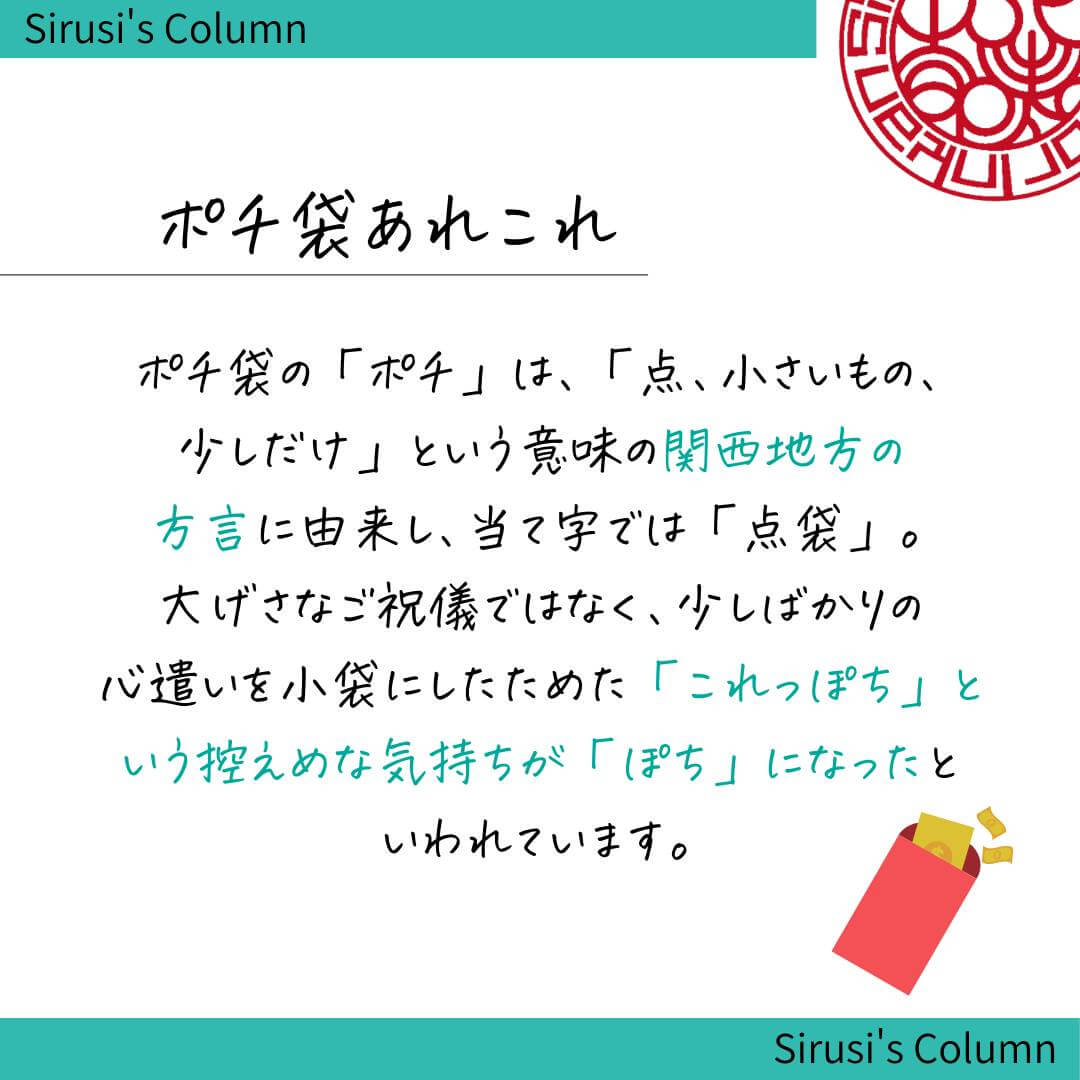 Sirusi's Column
ポチ袋あれこれ
ポチ袋の「ポチ」は、「点、小さいもの、
少しだけ」という意味の関西地方の
方言に由来し、当て字では「点袋」。
大げさなご祝儀ではなく、少しばかりの
心遣いを小袋にしたためた「これっぽち」と
いう控えめな気持ちが「ぽち」になったと
いわれています。
Sirusi's Column